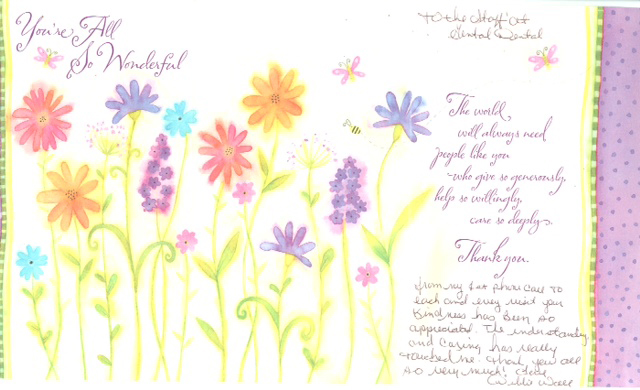 You're All
So Wonderful
To the Staff at
Gental Dental
The world,
will always need
people like you
who give so generously,
help so willingly,
care so deeply.
Thank you.
From my 1st phone call to
each and every visit your
kindness has been so
appreciated. The understanding
and caring has really
touched me. Thank you all
so very much!